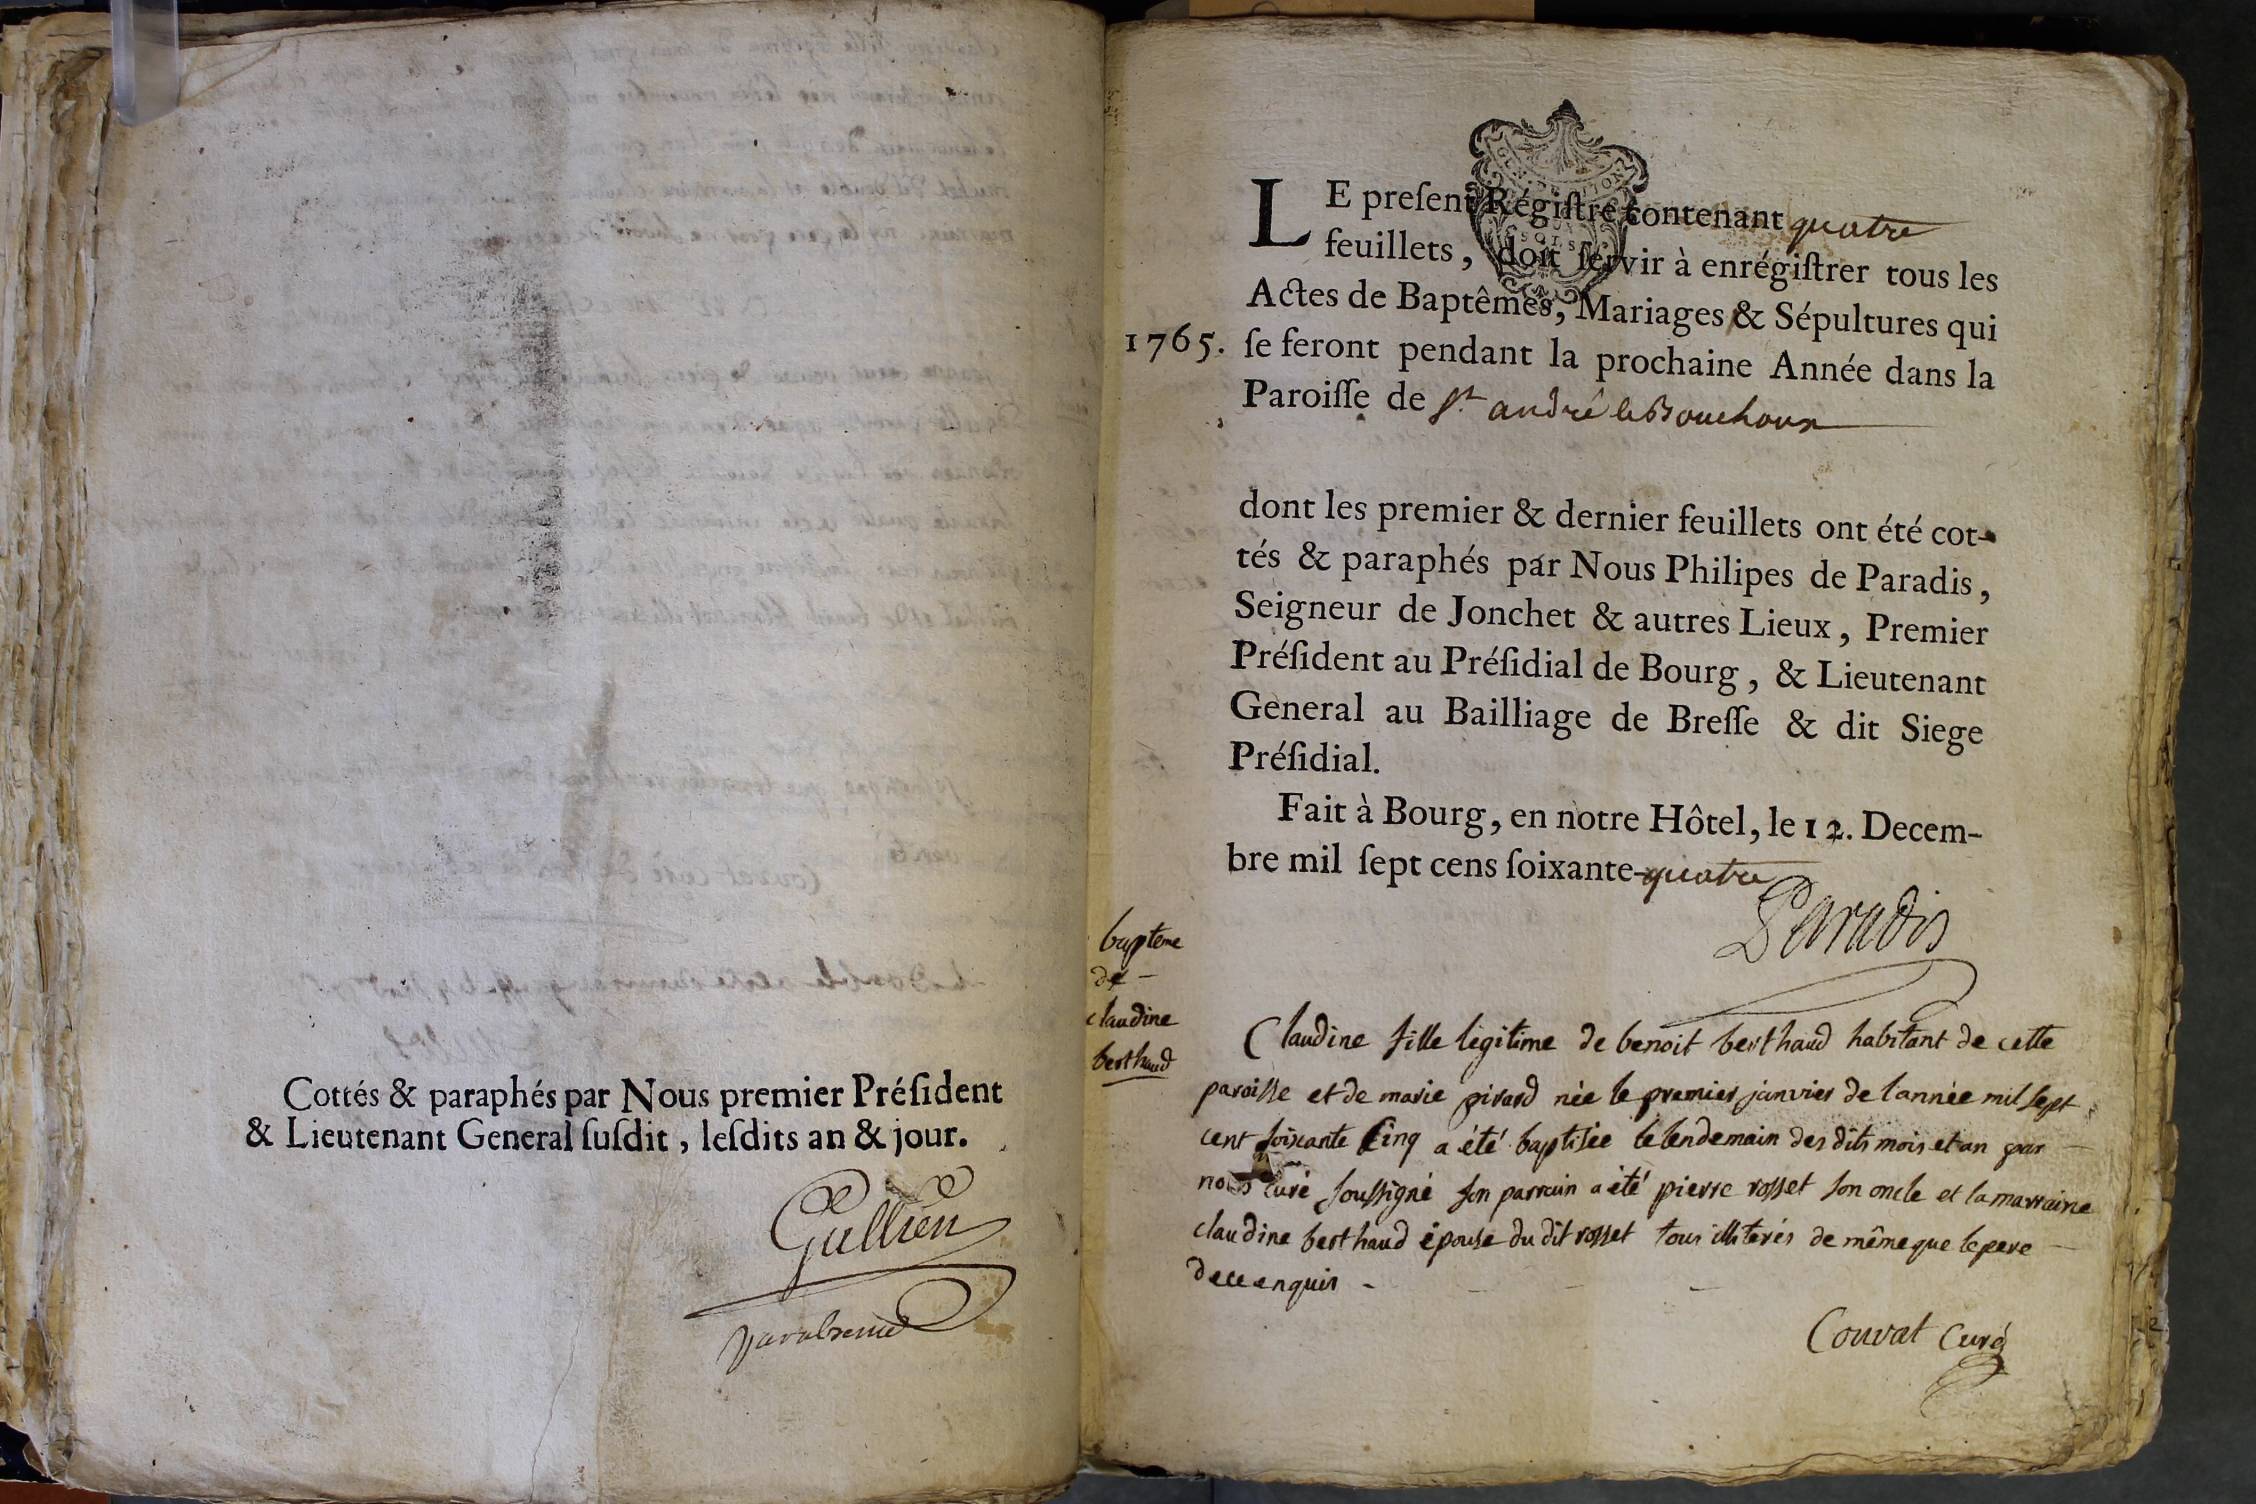 Cottés & paraphés par Nous premier Préſident
& Lieutenant General ſuſdit, leſdits an & jour.
Gullien
LE preſent Régiſtre contenant quatre
feuillets, doit ſervir à enrégiſtrer tous les
Actes de Baptêmes, Mariages & Sépultures qui
1765. ſe feront pendant la prochaine Année dans la
Paroiſſe de St andré le Bouchoux
dont les premier & dernier feuillets ont été cot-
tés & paraphés par Nous Philipes de Paradis,
Seigneur de Jonchet & autres Lieux, Premier
Préſident au Préſidial de Bourg, & Lieutenant
General au Bailliage de Breſſe & dit Siege
Préſidial.
Fait à Bourg, en notre Hôtel, le 12. Decem-
bre mil ſept cens ſoixante-quatre
Paradis
bapteme
de
claudine
berthaud
Claudine fille legitime de benoit berthaud habitant de cette
paroisse et de marie pirard née le premier janvier de l'année mil sept
cent soixante Cinq a été baptisée le lendemain des dits mois et an par
nous curé soussigné son parrain a été pierre rosset son oncle et la marraine
claudine berthaud épouse du dit rosset tous illiterés de même que le pere
de ce enquis
Couvat Curé